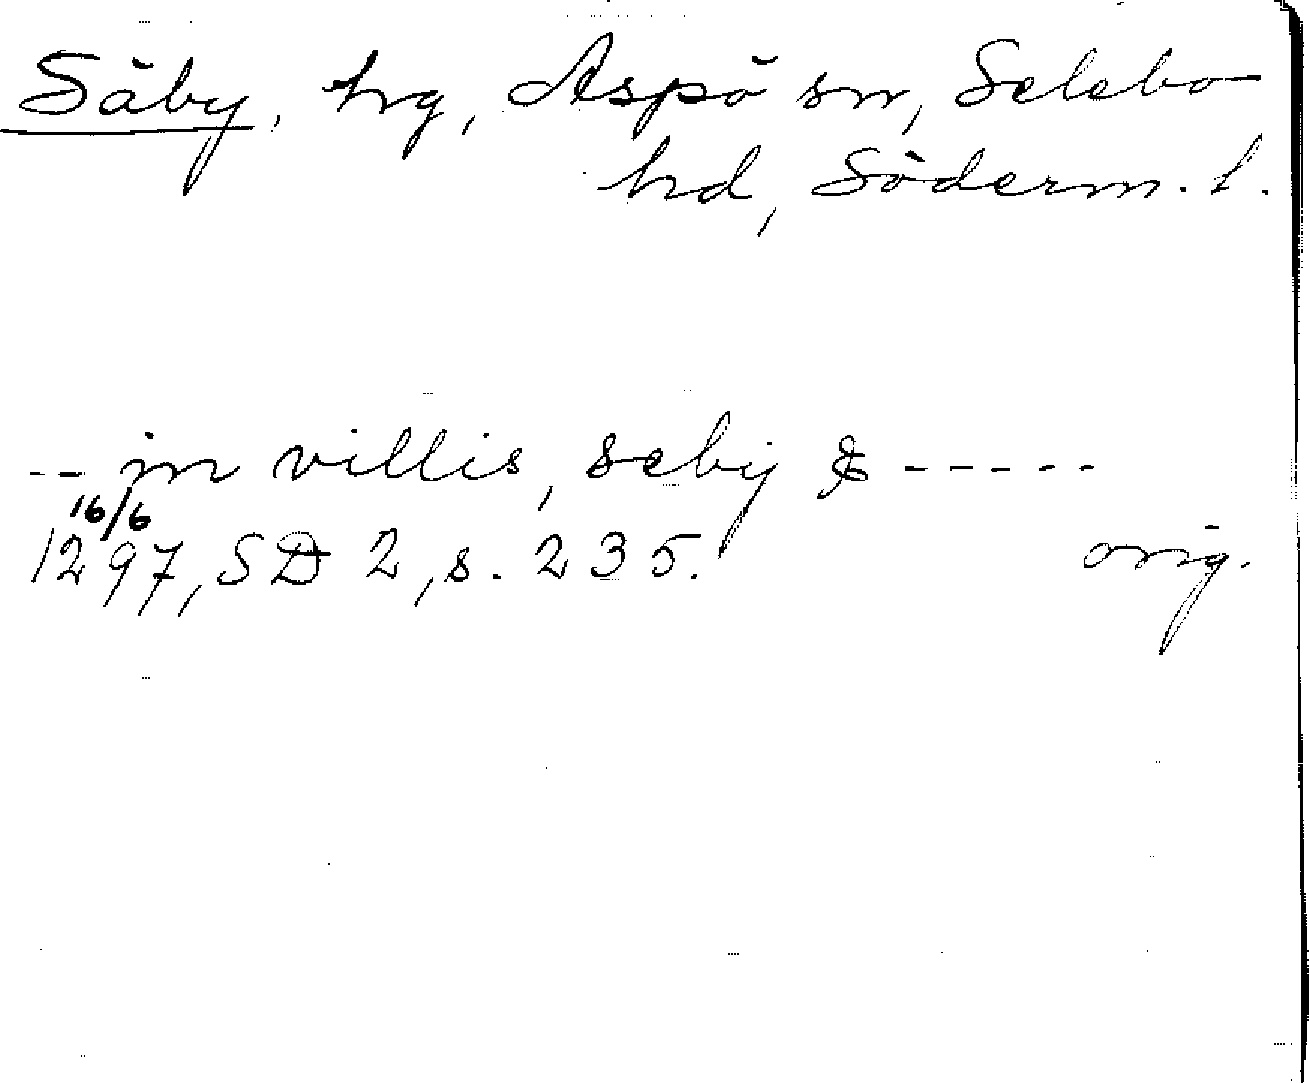 Säby, hg, Aspö sn, Selebo
hd, Söderm. l.
-- in villis, seby & -----
16/6
1297, SD 2, s. 235. orig.